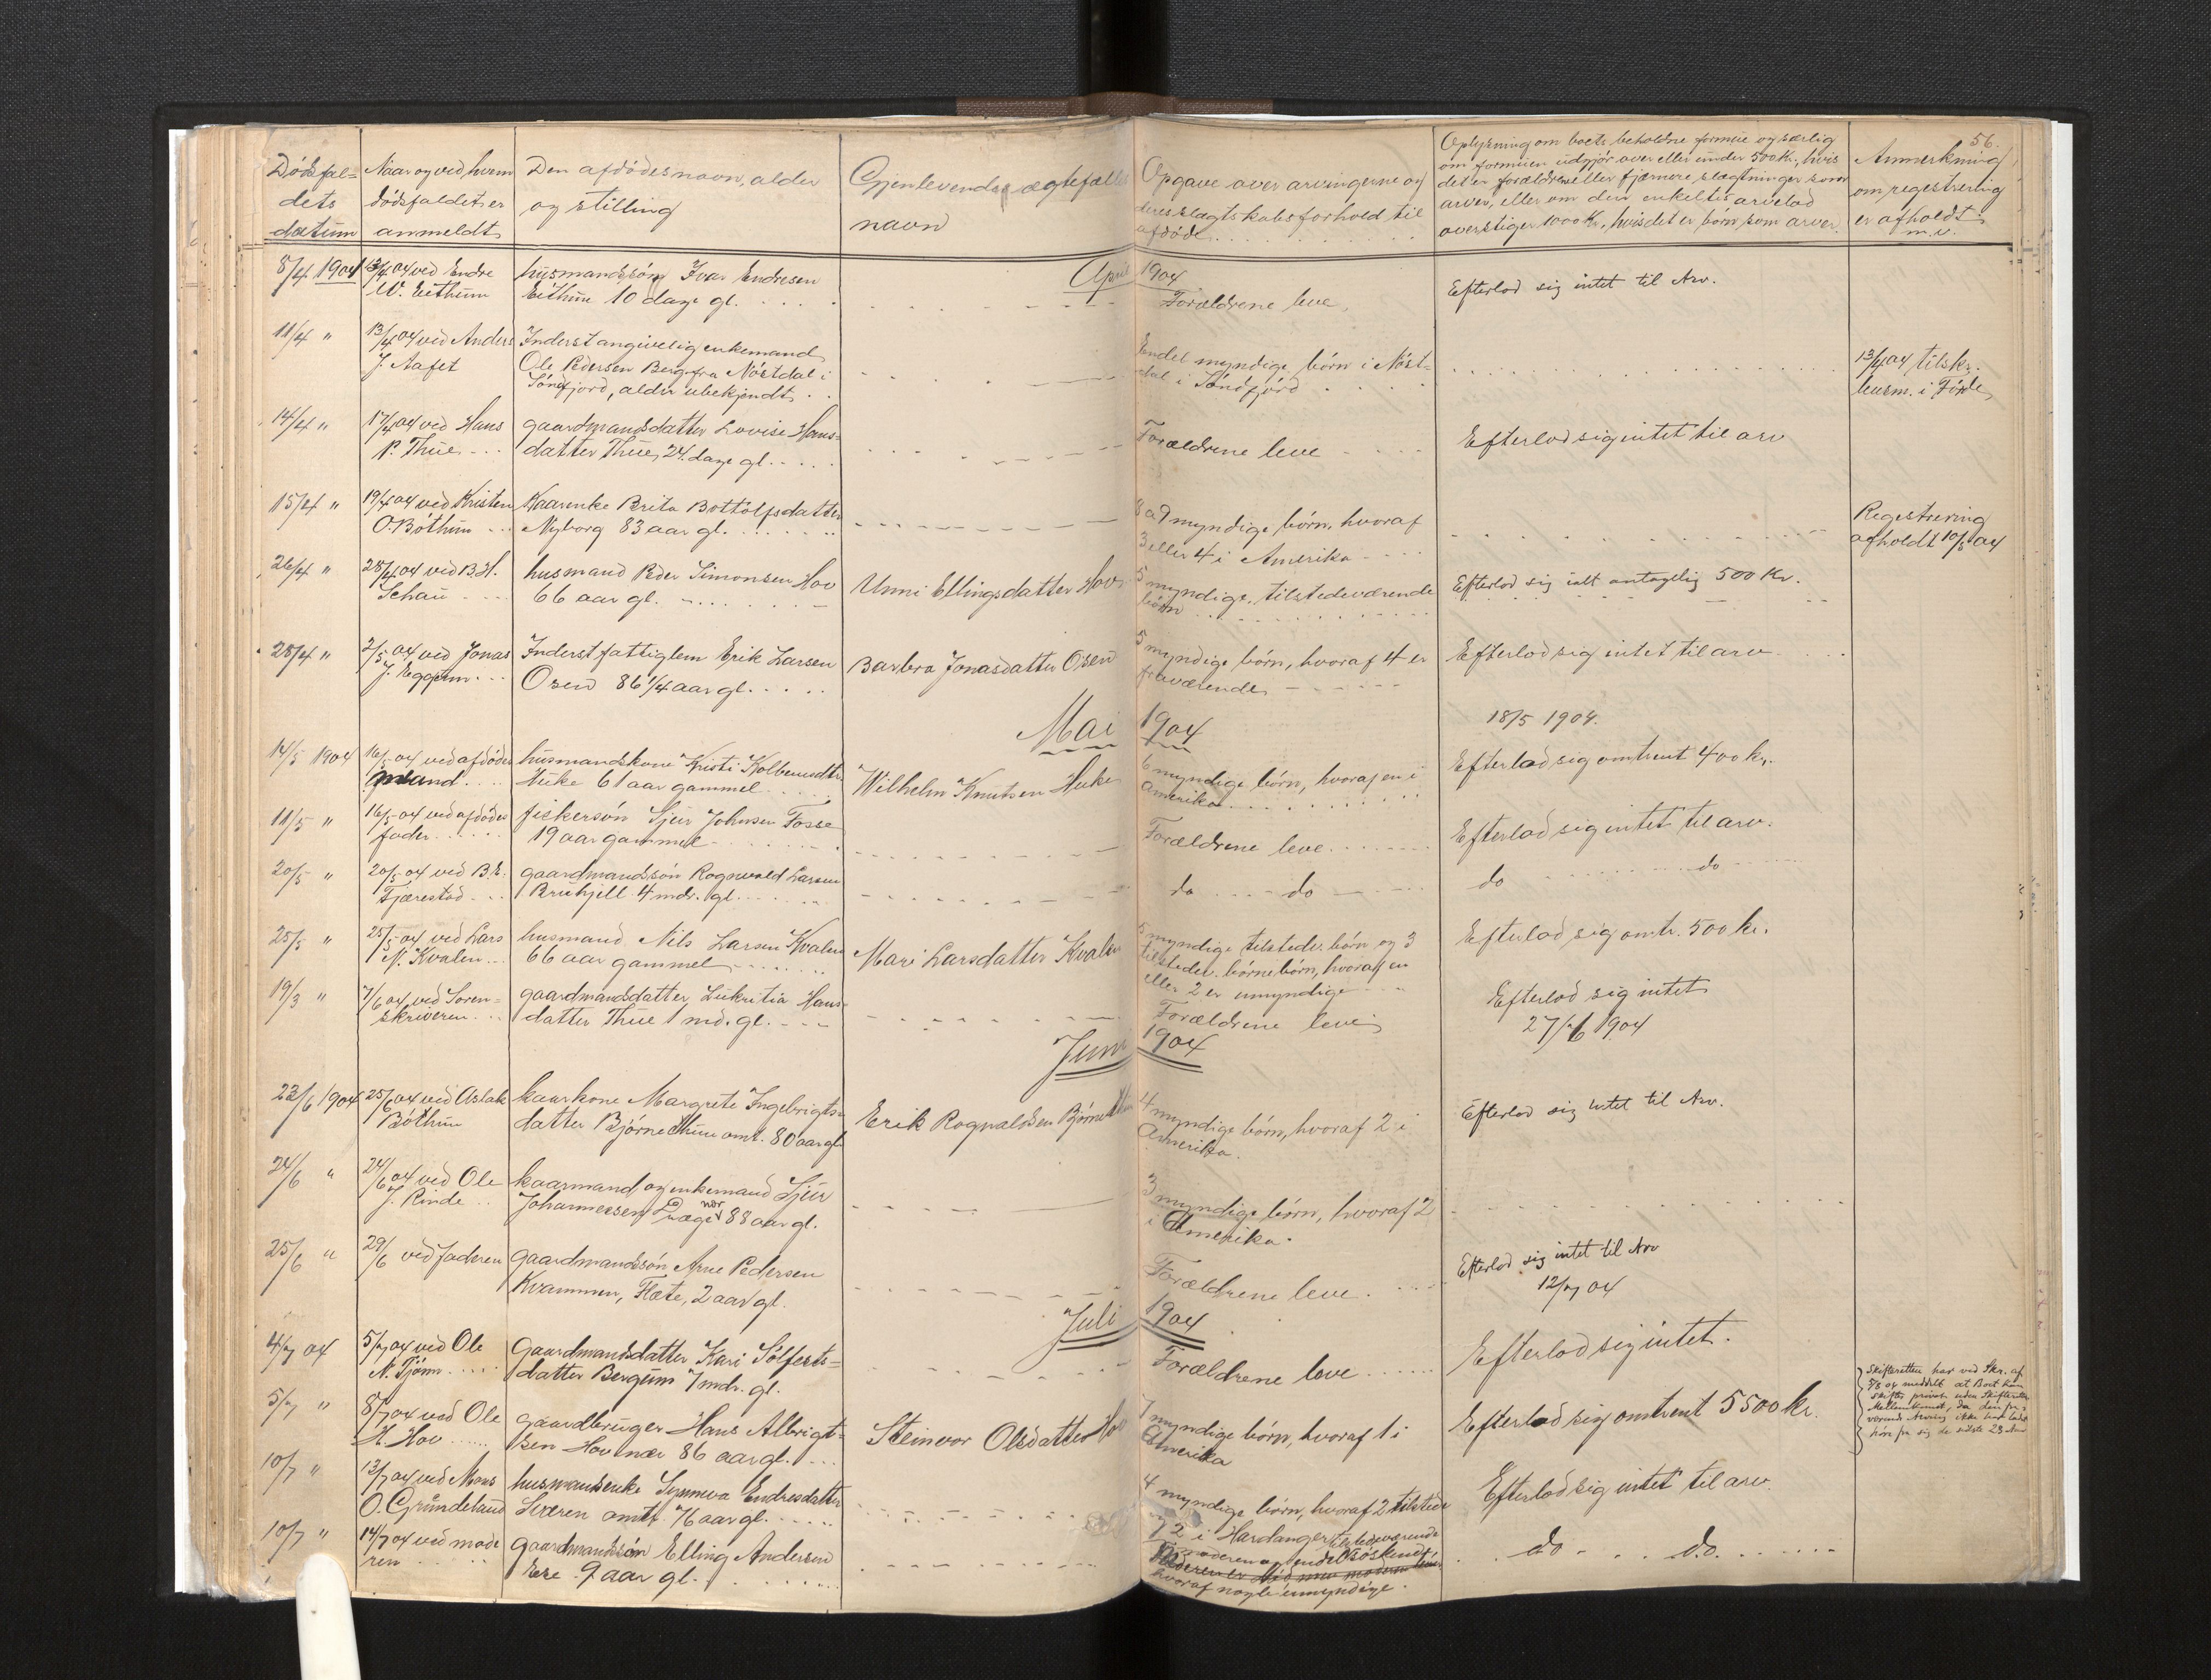 56.
Dödsfal-
dets
datum
Naar og ved hvem
dödsfaldet er
anmeldt
Den afdödes navn, alder
og stilling
Gjenlevende ægtefælles
navn
Opgave over arvingerne og
deres slægtskabsforhold til
afdöde
Oplysning om boets beholdne formue og særlig
om formuen udgjör over eller under 500 Kr., hvis
det er forældre eller fjærnere slægtninger som
arver, eller om den enkeltes arvelod
overstiger 1000 Kr., hvis det er börn som arver.
Anmerkning
om registrering
er afholdt
m.v.
April 1904
8/4 1904
13/4 04 ved Endre
W. Eithun
husmandssön Ivar Endresen
Eithun 10 dage gl.
Forældrene leve.
Efterlod sig intet til Arv.
11/4 "
13/4 04 ved Anders
J. Aafet
Inderst angivelig enkemand
Ole Pedersen Berge fra Nöstdal i
Söndfjord, alder ubekjendt
Endel myndige börn i Nöst-
dal i Söndfjord
13/4 04 tilskr.
lensm. i Förde
14/4 "
17/4 04 ved Hans
P. Thue
gaardmandsdatter Lovise Hans-
datter Thue, 24 dage gl.
Forældrene leve
Efterlod sig intet til arv
15/4 "
19/4 04 ved Kristen
O. Böthun
Kaarenke Brita Bottolfsdatter
Nyborg 83 aar gl.
8 a 9 myndige börn, hvoraf
3 eller 4 i Amerika
Registrering
afholdt 10/5 04
26/4 "
28/4 04 ved B. H.
Schau
husmand Peder Simonsen Hov
66 aar gl.
Unni Ellingsdatter Hov
5 myndige, tilstedeværende
börn
Efterlod sig ialt antagelig 500 Kr.
28/4 "
2/5 04 ved Jonas
J. Eggum
Inderst fattiglem Erik Larsen
Osen 86 1/4 aar gl.
Barbra Jonasdatter Osen
5 myndige börn, hvoraf 4 er
fraværende
Efterlod sig intet til arv
Mai 1904
18/5 1904.
14/5 1904
16/5 04 ved afdödes
mand
husmandskone Kristi Kolbensdtr
Huke 61 aar gammel
Wilhelm Knutsen Huke
6 myndige börn, hvoraf en i
Amerika
Efterlod sig omtrent 400 kr.
11/5 "
16/5 04 ved afdödes
fader
fiskersön Sjur Johnsen Fosse
19 aar gammel
Forældrene leve
Efterlod sig intet til arv.
20/5 "
20/5 04 ved B. E.
Tjærestad
gaardmandssön Rognvald Larsen
Bruhjell 4 mdr. gl.
do do
do do
25/5 "
25/5 04 ved Lars
N. Kvalen
husmand Nils Larsen Kvalen
66 aar gammel
Mari Larsdatter Kvalen
5 myndige tilstedev. börn og 3
tilstedev. börnebörn, hvoraf en
eller 2 er umyndige
Efterlod sig omtr. 500 kr.
19/3 "
7/6 04 ved Soren-
skriveren
gaardmandsdatter Lukritia Hans-
datter Thue 1 md. gl.
Forældrene leve
Efterlod sig intet
27/6 1904
Juni 1904
23/6 1904
25/6 04 ved Aslak
Böthun
kaarkone Margrete Ingebrigts-
datter Björnethun omt. 80 aar gl
Erik Rognaldsen Björnethun
4 myndige börn, hvoraf 2 i
Amerika.
Efterlod sig intet til Arv.
24/6 "
24/6 04 ved Ole
J. Rinde
kaarmand og enkemand Sjur
Johannessen nær 88 aar gl.
3 myndige börn, hvoraf 2
i Amerika.
25/6 "
29/6 ved faderen
gaardmandssön Arne Pedersen
Kvammen, Flete, 2 aar gl.
Forældrene leve.
Efterlod sig intet til Arv
12/7 04
Juli 1904
4/7 04
5/7 04 ved Ole
N. Tjönn
gaardmandsdatter Kari Sölfests-
datter Bergum 7 mdr. gl.
Forældrene leve
Efterlod sig intet.
5/7 "
8/7 04 ved Ole
H. Hov
gaardbruger Hans Albrigt-
sen Hov nær 86 aar gl.
Steinvor Olsdatter Hov
7 myndige börn, hvoraf 1 i
Amerika
Efterlod sig omtrent 5500 kr.
Skifteretten har ved Skr. af
7/8 04 meddelt at Boet kan
skiftes privat uden Skifterettens
Mellemkomst, da den fra-
værende Arving ikke har ladet
höre fra sig de sidste 23 Aar
10/7 "
13/7 04 ved Mons
O. Grundeland
husmandsenke Synneva Endresdatter
Sværen omt. 76 aar gl.
4 myndige börn, hvoraf 2 tilstede
og 2 i Hardanger
Efterlod sig intet til arv.
10/7 "
14/7 04 ved mode
ren
gaardmandssön Elling Andersen
Ese 9 aar gl.
tilstedeværende
moderen og endel söskende
hvoraf nogle umyndige.
do do